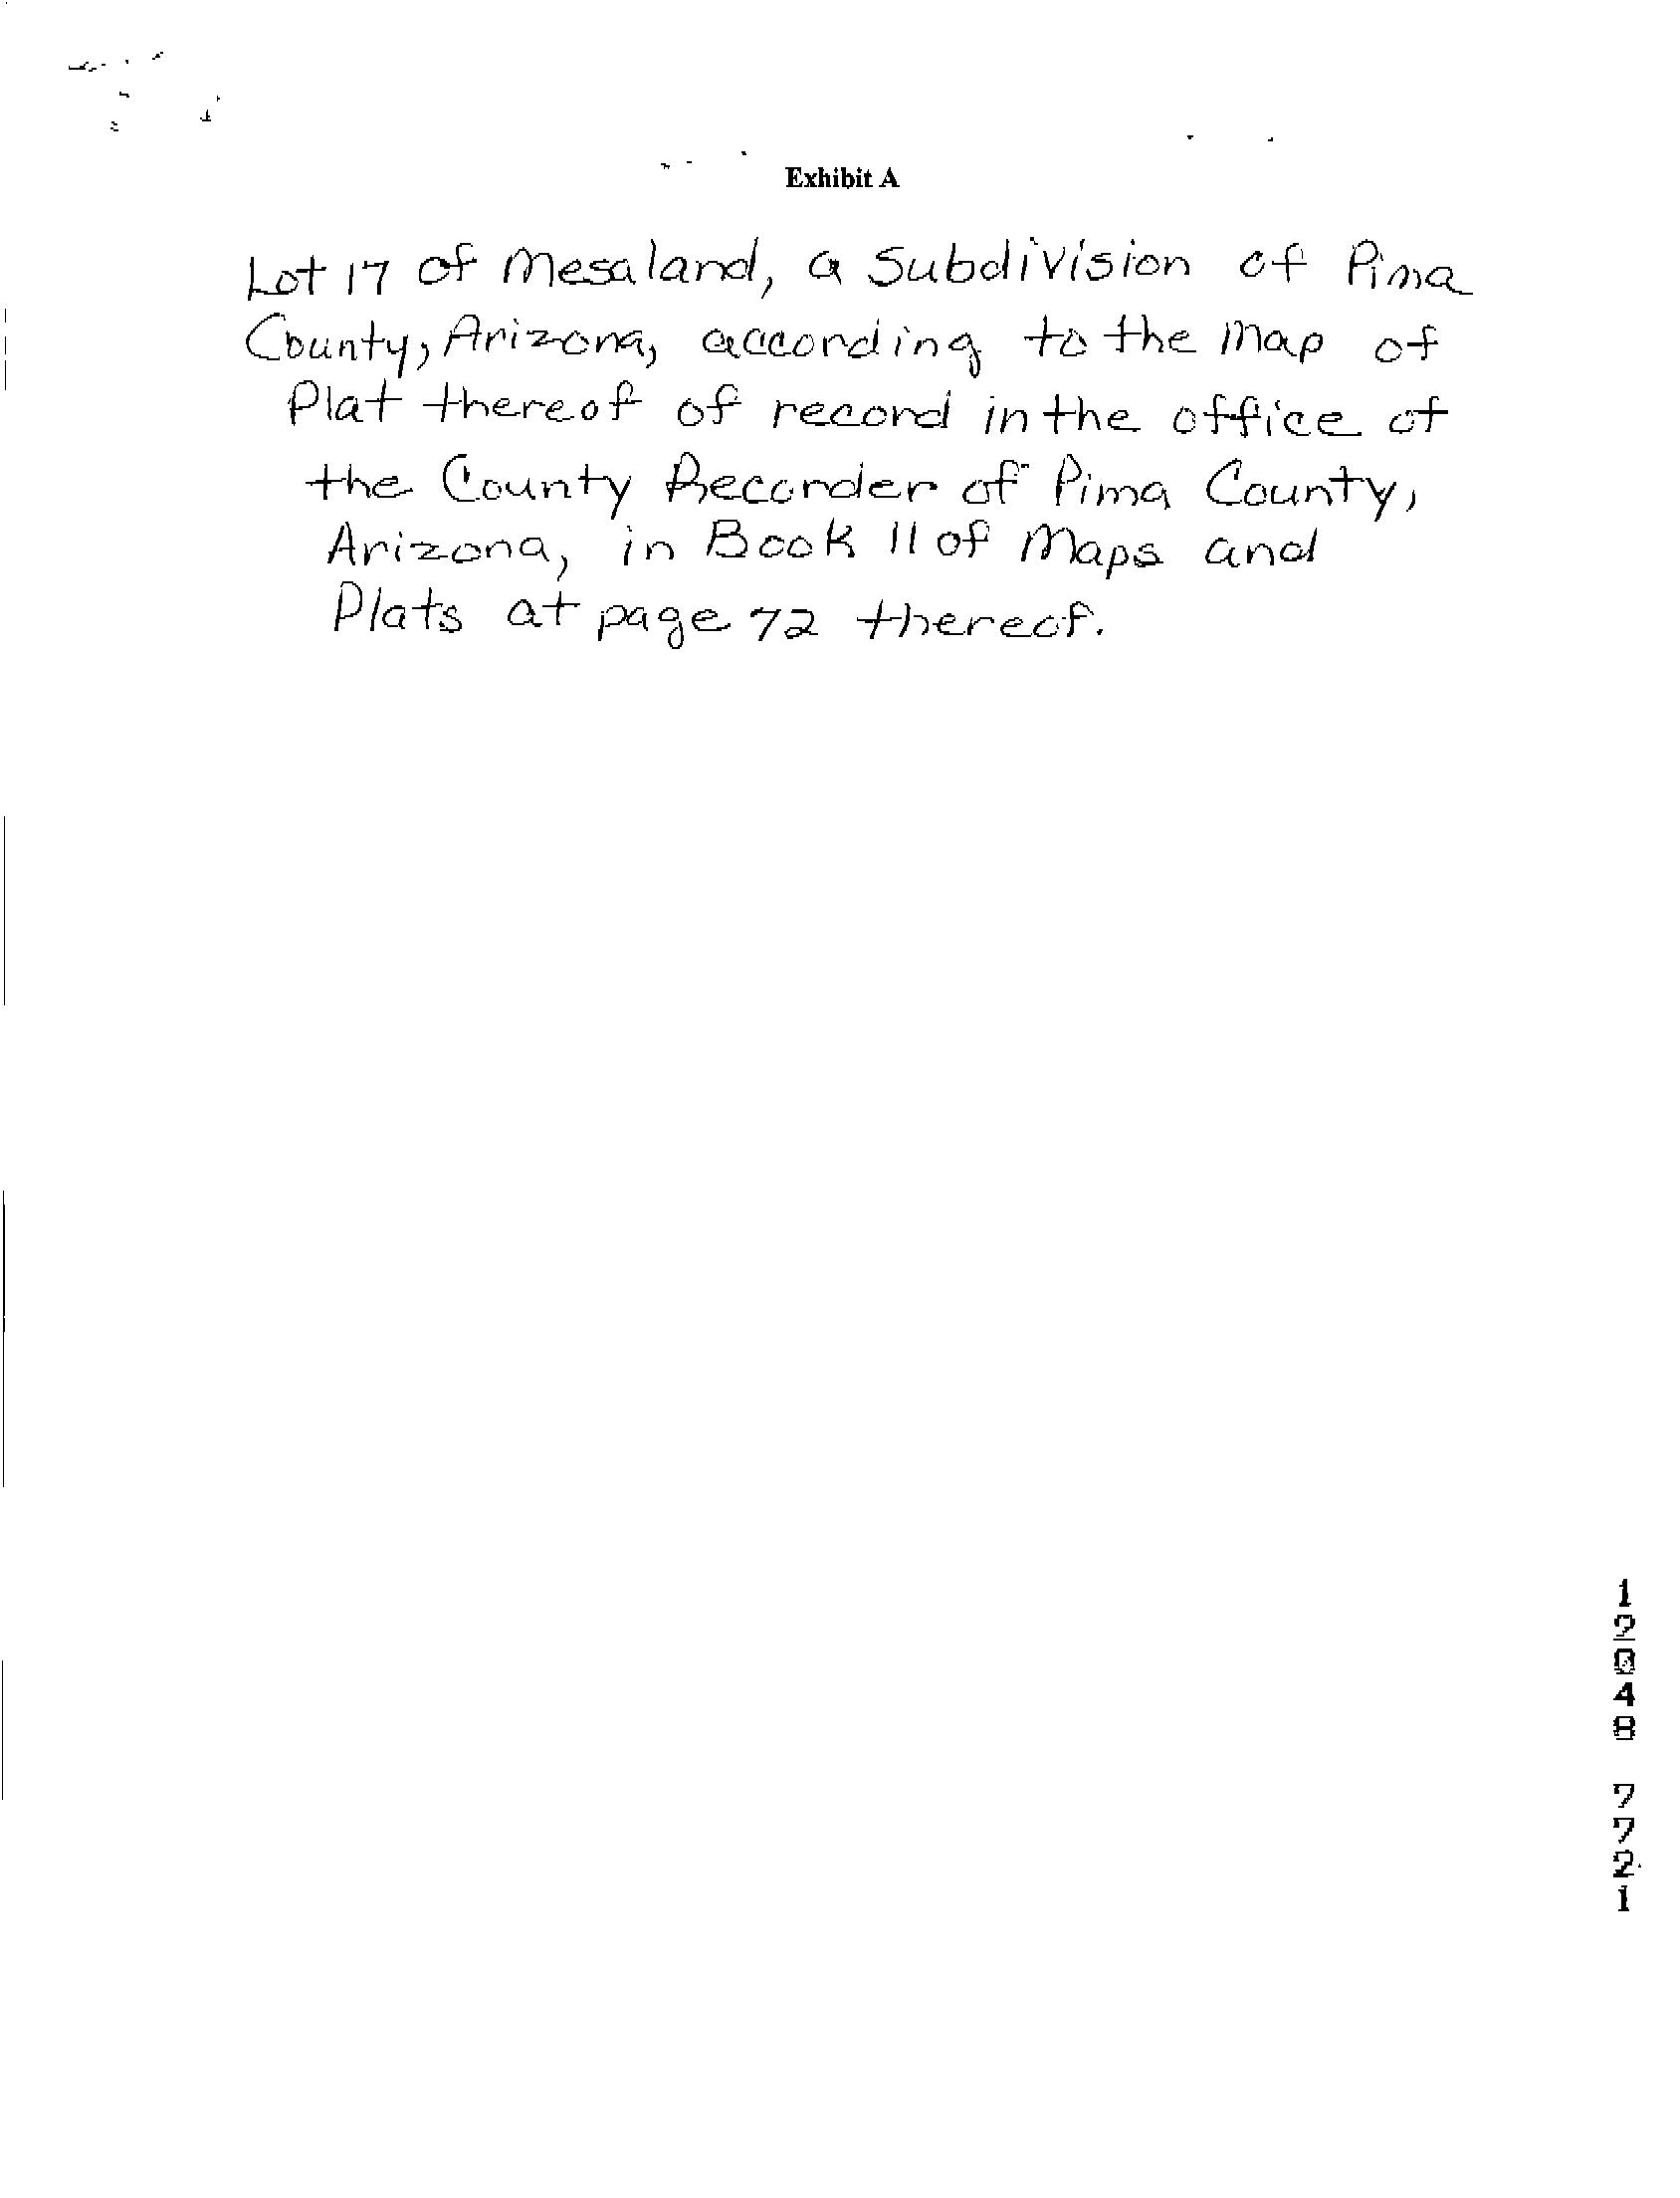 Exhibit A
Lot 17 of Mesaland, a Subdivision of Pima
County, Arizona, according to the Map of
Plat thereof of record in the office of
the County Recorder of Pima County,
Arizona, in Book 11 of Maps and
Plats at page 72 thereof.
1
2
0
4
8
7
7
2
1